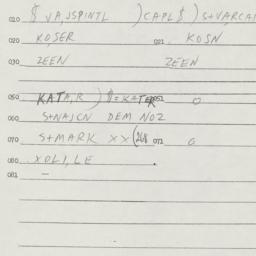 010 $ VA,JSPINTL )CAPL$ ) S+VARCAI
020 KO,SER 021 KOSN
030 ZEEN ZEEN
050 KAT,A,R ) $=KATER 051 0
060 S+NAJCN DEM NO2
070 S+MARK XX(268 071 0
080 XOLI,LE .
081 –